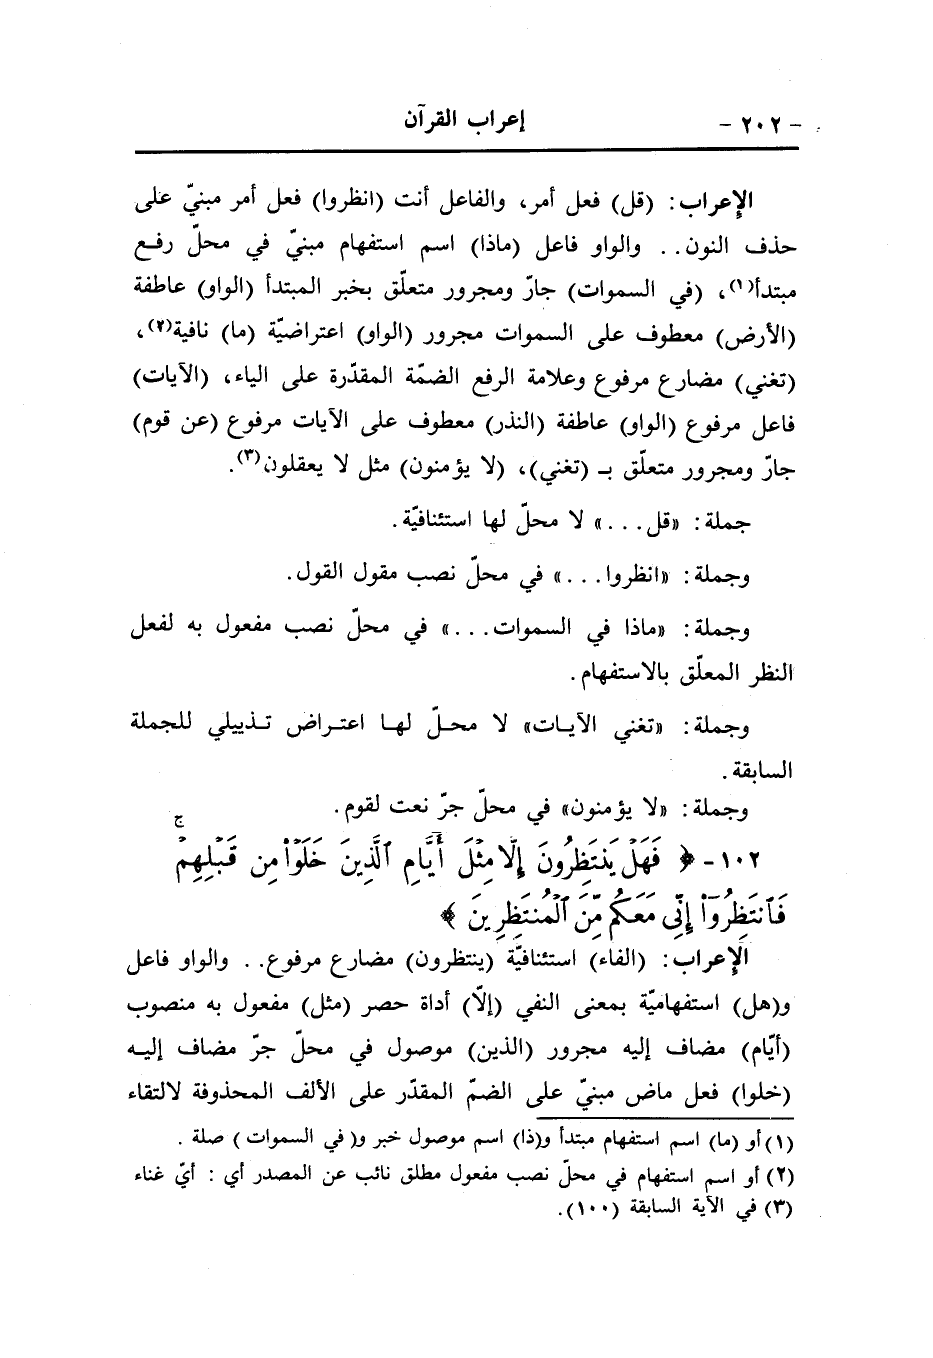 - ٢٠٢ -
إعراب القرآن
الإعراب: (قل) فعل أمر، والفاعل أنت (انظروا) فعل أمر مبنيّ على
حذف النون.. والواو فاعل (ماذا) اسم استفهام مبنيّ في محلّ رفع
مبتدأ(١)، (في السموات) جارّ ومجرور متعلّق بخبر المبتدأ (الواو) عاطفة
(الأرض) معطوف على السموات مجرور (الواو) اعتراضيّة (ما) نافية(٢)،
(تغني) مضارع مرفوع وعلامة الرفع الضمّة المقدّرة على الياء، (الآيات)
فاعل مرفوع (الواو) عاطفة (النذر) معطوف على الآيات مرفوع (عن قوم)
جارّ ومجرور متعلّق بـ (تغني)، (لا يؤمنون) مثل لا يعقلون(٣).
جملة: «قل...» لا محلّ لها استئنافيّة.
وجملة: «انظروا...» في محلّ نصب مقول القول.
وجملة: «ماذا في السموات...» في محلّ نصب مفعول به لفعل
النظر المعلّق بالاستفهام.
وجملة: «تغني الآيات» لا محلّ لها اعتراض تذييلي للجملة
السابقة.
وجملة: «لا يؤمنون» في محلّ جرّ نعت لقوم.
١٠٢ - ﴿ فَهَلْ يَنتَظِرُونَ إِلَّا مِثْلَ أَيَّامِ ٱلَّذِينَ خَلَوْا۟ مِن قَبْلِهِمْ ۚ
فَٱنتَظِرُوٓا۟ إِنِّى مَعَكُم مِّنَ ٱلْمُنتَظِرِينَ ﴾
الإعراب: (الفاء) استئنافيّة (ينتظرون) مضارع مرفوع.. والواو فاعل
و(هل) استفهاميّة بمعنى النفي (إلّا) أداة حصر (مثل) مفعول به منصوب
(أيّام) مضاف إليه مجرور (الذين) موصول في محلّ جرّ مضاف إليه
(خلوا) فعل ماض مبنيّ على الضمّ المقدّر على الألف المحذوفة لالتقاء
(١) أو (ما) اسم استفهام مبتدأ و(ذا) اسم موصول خبر و( في السموات ) صلة .
(٢) أو اسم استفهام في محلّ نصب مفعول مطلق نائب عن المصدر أي : أيّ غناء
(٣) في الآية السابقة (١٠٠).